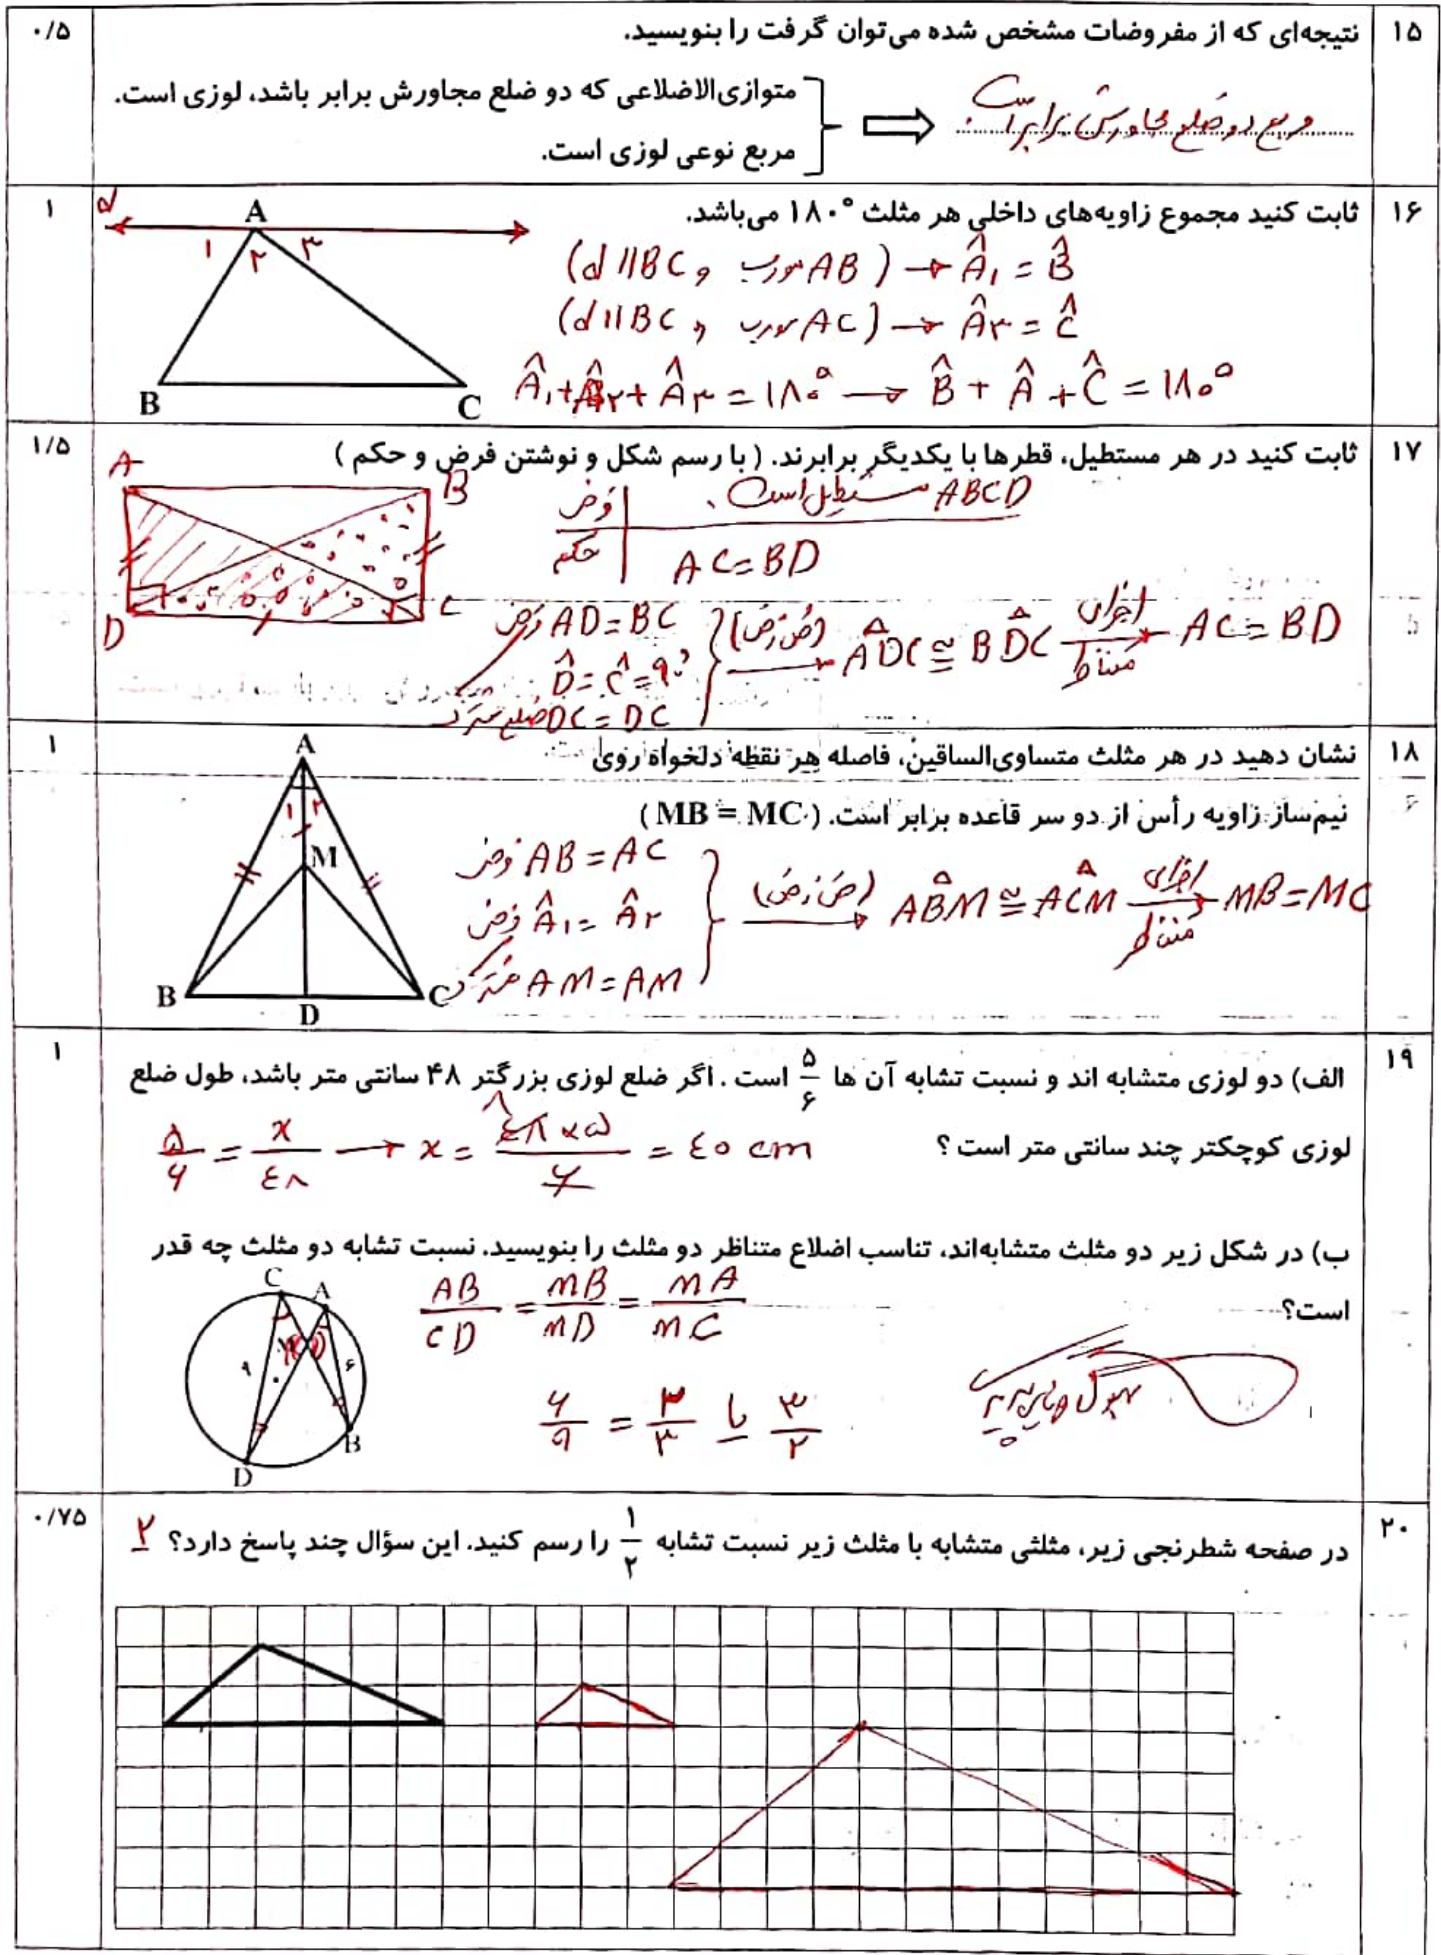 ۱۵ نتیجه‌ای که از مفروضات مشخص شده می‌توان گرفت را بنویسید. ۰/۵
متوازی‌الاضلاعی که دو ضلع مجاورش برابر باشد، لوزی است.
مربع نوعی لوزی است.
مربع دو ضلع مجاورش برابر است.
۱۶ ثابت کنید مجموع زاویه‌های داخلی هر مثلث ۱۸۰° می‌باشد. ۱
d A
۱ ۲ ۳
B C
(d || BC و مورب AB) → Â₁ = B̂
(d || BC و مورب AC) → Â۳ = Ĉ
Â₁ + Â۲ + Â۳ = ۱۸۰° → B̂ + Â + Ĉ = ۱۸۰°
۱۷ ثابت کنید در هر مستطیل، قطرها با یکدیگر برابرند. (با رسم شکل و نوشتن فرض و حکم) ۱/۵
A B
D C
فرض ABCD مستطیل است.
حکم AC = BD
فرض AD = BC
D̂ = Ĉ = ۹۰°
ضلع مشترک DC = DC
(ض ز ض) → ADC ≅ BDC اجزای متناظر → AC = BD
۱۸ نشان دهید در هر مثلث متساوی‌الساقین، فاصله هر نقطه دلخواه روی ۱
نیم‌ساز زاویه رأس از دو سر قاعده برابر است. (MB = MC)
A
۱ ۲
M
B D C
فرض AB = AC
فرض Â₁ = Â۲
مشترک AM = AM
(ض ز ض) → ABM ≅ ACM اجزای متناظر → MB = MC
۱۹ الف) دو لوزی متشابه اند و نسبت تشابه آن ها ۵/۶ است . اگر ضلع لوزی بزرگتر ۴۸ سانتی متر باشد، طول ضلع ۱
لوزی کوچکتر چند سانتی متر است ؟
۵/۶ = x/۴۸ → x = ۴۸×۵/۶ = ۴۰ cm
۸
ب) در شکل زیر دو مثلث متشابه‌اند، تناسب اضلاع متناظر دو مثلث را بنویسید. نسبت تشابه دو مثلث چه قدر
است؟
C A
M
۹ ۶
B
D
AB/CD = MB/MD = MA/MC
۶/۹ = ۲/۳ یا ۳/۲
۲۰ در صفحه شطرنجی زیر، مثلثی متشابه با مثلث زیر نسبت تشابه ۱/۲ را رسم کنید. این سؤال چند پاسخ دارد؟ ۲ ۰/۷۵